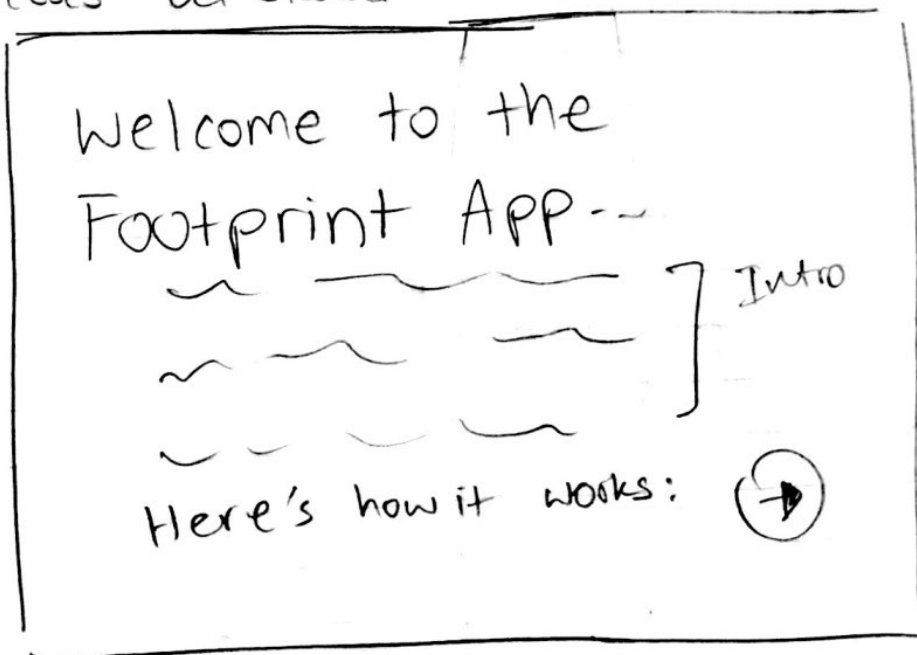 Welcome to the
Footprint App--
Intro
Here's how it works: